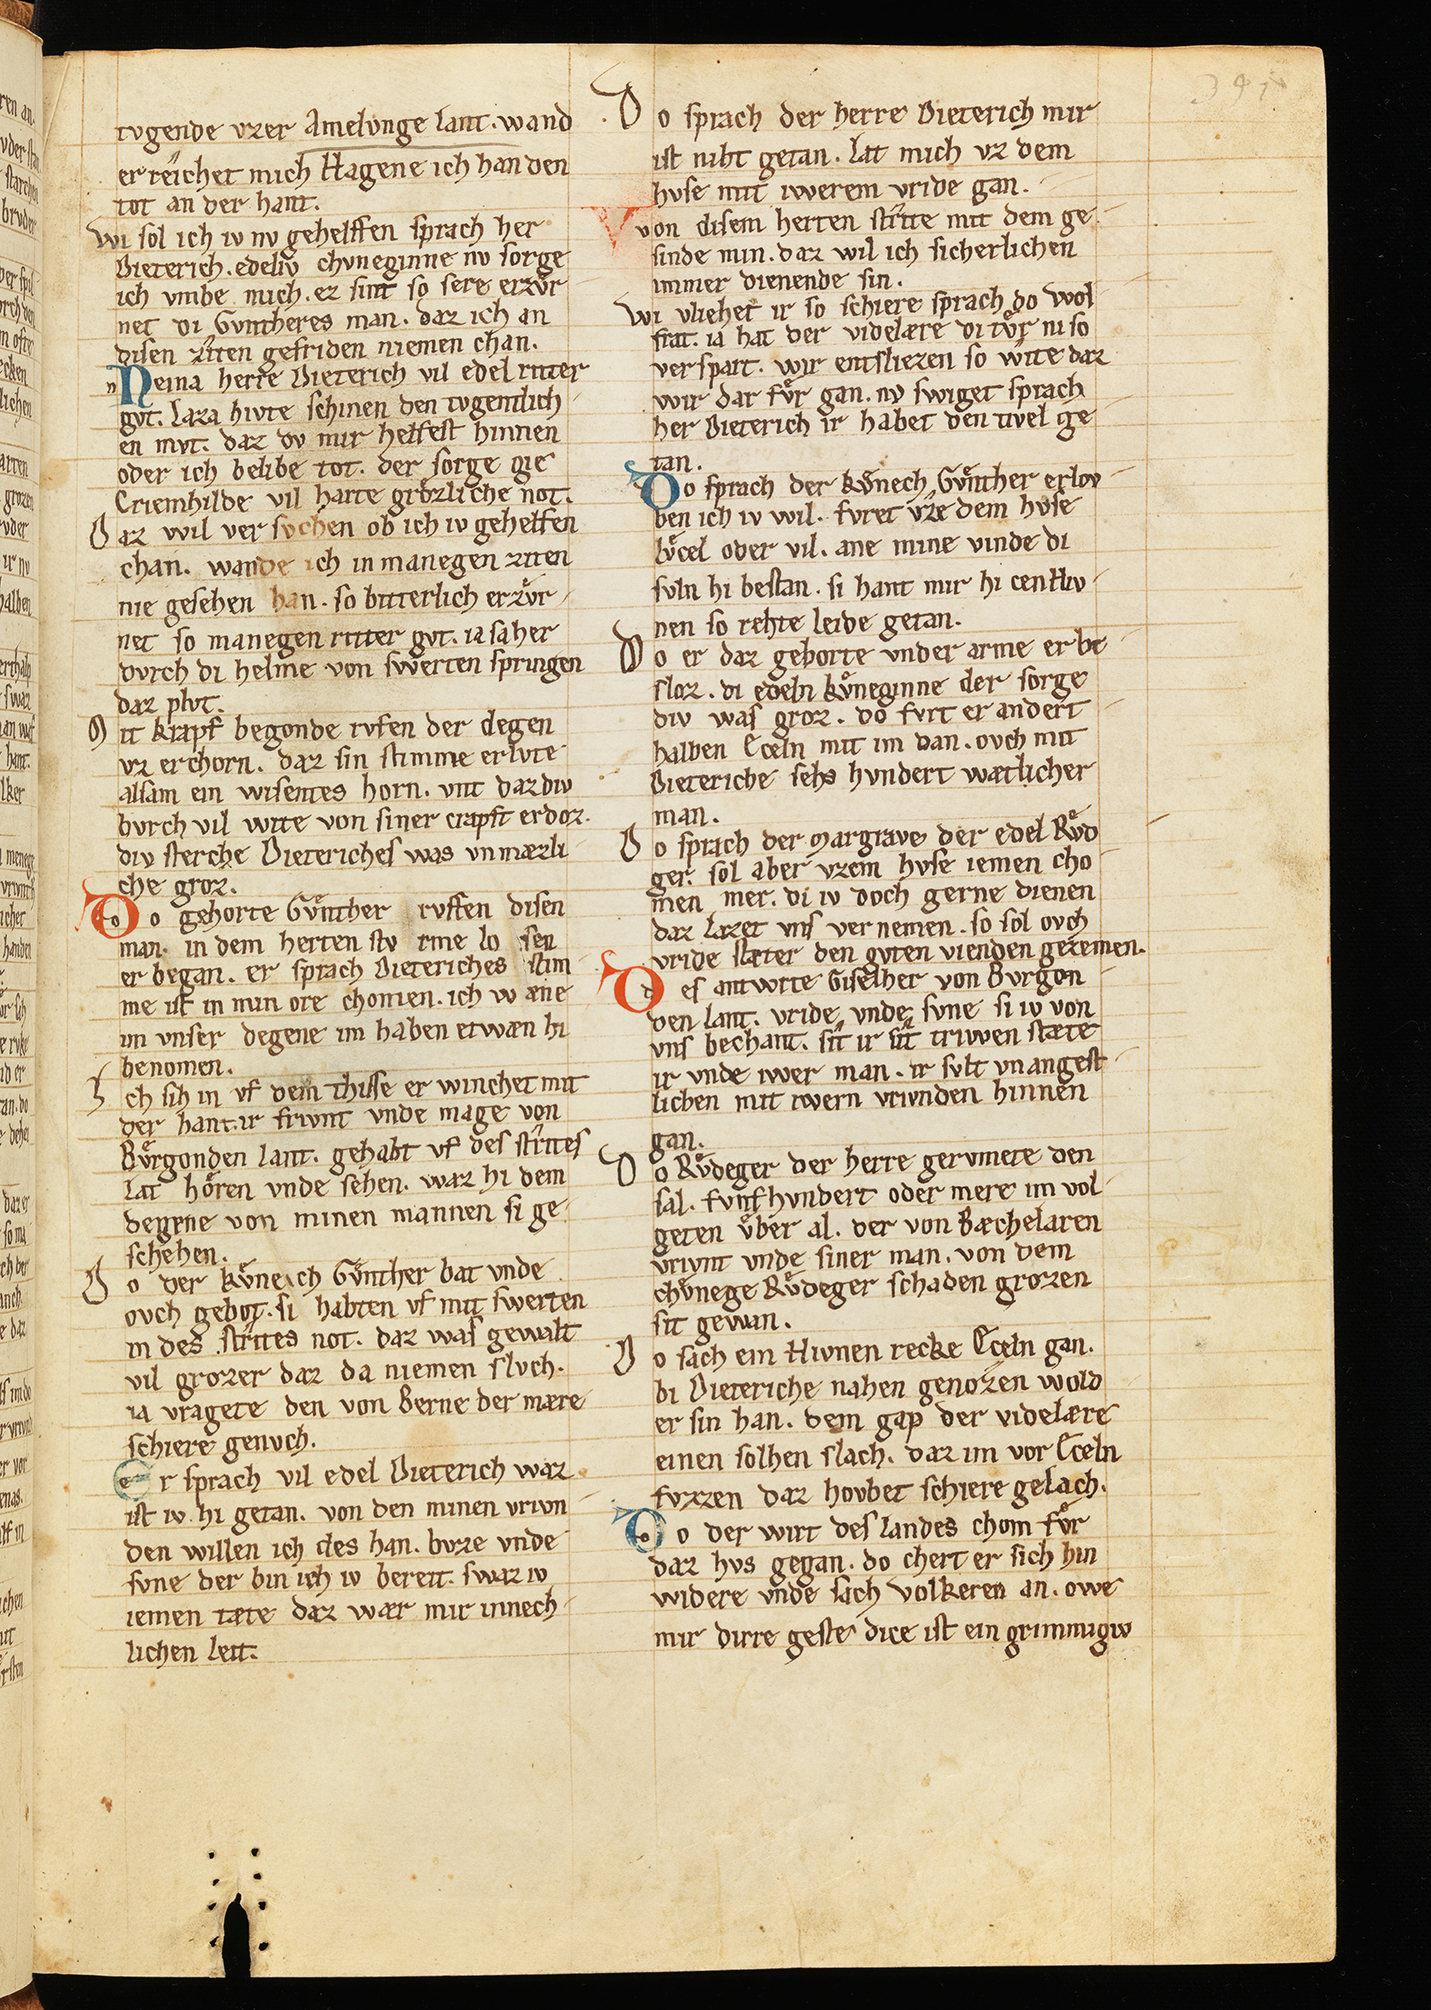 tvgende vzer Amelvnge lant. wand
erreichet mich Hagene ich han den
tot an der hant.
Wi sol ich iv nv gehelffen sprach her
Dieterich. edeliv chvneginne nv sorge
ich vmbe mich. ez sint so sere erzvͤr
net di Gvntheres man. daz ich an
disen ziten gefriden niemen chan.
Neina herre Dieterich vil edel ritter
gvt. laza hivte schinen den tvgentlich
en mvt. daz dv mir helfest hinnen
oder ich belibe tot. der sorge gie
Criemhilde vil harte grozliche not.
Daz wil ver svchen ob ich iv gehelfen
chan. wande ich in manegen ziten
nie gesehen han. so bitterlich erzvͤr
net so manegen ritter gvt. ia sa her
dvrch di helme von swerten springen
daz plvt.
Mit krapf begonde rvfen der degen
vz erchorn. daz sin stimme erlvte
alsam ein wisentes horn. vnt daz div
bvrch vil wite von siner crapft erdoz.
div sterche Dieteriches was vnmæzli
che groz.
Do gehorte Gvͤnther rvffen disen
man. in dem herten stvrme losen
er began. er sprach Dieteriches stim
me ist in min ore chomen. ich wæne
im vnser degene im haben etwæn hi
benomen.
Ich sih in vf dem thisse er winchet mit
der hant. ir frivnt vnde mage von
Bvͤrgonden lant. gehabt vf des strites
lat hoͤren vnde sehen. waz hi dem
degene von minen mannen si ge
schehen.
Do der kvͤnech Gvͤnther bat vnde
ovch gebot. si habten vf mit swerten
in des strites not. daz was gewalt
vil grozer daz da niemen slvch.
ia vragete den von Berne der mære
schiere genvch.
Er sprach vil edel Dieterich waz
ist iv hi getan. von den minen vrivn
den willen ich des han. bvze vnde
svne der bin ich iv bereit. swaz iv
iemen tæte daz wær mir innech
lichen leit.
Do sprach der herre Dieterich mir
ist niht getan. lat mich vz dem
hvse mit iwerem vride gan.
Von disem herten strite mit dem ge
sinde min. daz wil ich sicherlichen
immer dienende sin.
Wi vliehet ir so schiere sprach do Wol
frat. ia hat der videlære di tvͤr ni so
verspart. wir entsliezen so wite daz
wir dar fvͤr gan. nv swiget sprach
her Dieterich ir habet den tivel ge
tan.
Do sprach der kvͤnech Gvͤnther erlov
ben ich iv wil. fvret vze dem hvse
lvͤcel oder vil. ane mine vinde di
svln hi bestan. si hant mir hi cen Hiv
nen so rehte leide getan.
Do er daz gehorte vnder arme er be
sloz. di edeln kvͤneginne der sorge
div was groz. do fvrt er andert
halben Eceln mit im dan. ovch mit
Dieteriche sehs hvndert wætlicher
man.
Do sprach der margrave der edel Rvͤd
ger. sol aber vzem hvse iemen cho
men mer. di iv doch gerne dienen
daz lazet vns vernemen. so sol ovch
vride stæter den gvten vienden gezemen.
Des antwrte Giselher von Bvrgon
den lant. vride vnde svne si iv von
vns bechant. sit ir sit triwen stæte
ir vnde iwer man. ir svlt vnangest
lichen mit iwern vrivnden hinnen
gan.
Do Rvͤdeger der herre gervmete den
sal. fvnfhvndert oder mere im vol
geten vͤber al. der von Bæchelaren
vrivnt vnde siner man. von dem
chvͤnege Rvͤdeger schaden grozen
sit gewan.
Do sach ein Hivnen recke Eceln gan.
bi Dieteriche nahen genozen wold
er sin han. dem gap der videlære
einen solhen slach. daz im vor Eceln
fvzzen daz hovbet schiere gelach.
Do der wirt des landes chom fvͤr
daz hvs gegan. do chert er sich hin
widere vnde sach Volkeren an. owe
mir dirre geste dice ist ein grimmigiv